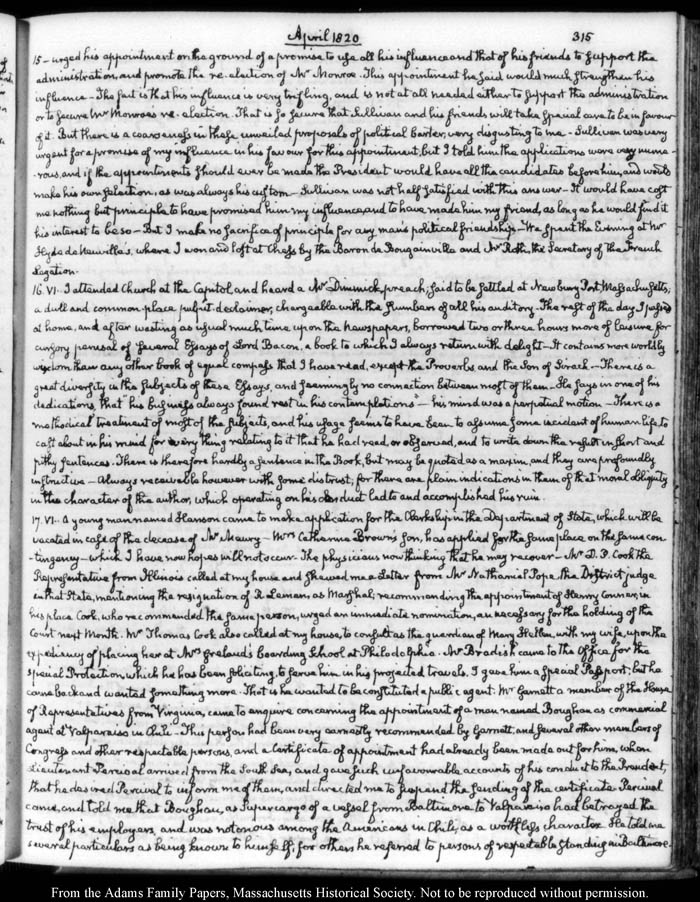 April 1820
315
15 – urged his appointment on the ground of a promise to use all his influence and that of his friends to support the
administration, and promote the re-election of Mr Monroe. This appointment he said would much strengthen his
influence – The fact is that his influence is very trifling, and is not at all needed either to support the administration
or to secure Mr Monroe's re-election. That is so secure that Sullivan and his friends will take special care to be in favour
of it. But there is a coarseness in these unveiled proposals of political barter, very disgusting to me – Sullivan was very
urgent for a promise of my influence in his favour for this appointment, but I told him the applications were very nume-
-rous, and if the appointments should ever be made the President would have all the candidates before him, and would
make his own selection, as was always his custom – Sullivan was not half satisfied with this answer – It would have cost
me nothing but principle to have promised him my influence, and to have made him my friend, as long as he would find it
his interest to be so – But I make no sacrifice of principle for any man's political friendship – We spent the Evening at Mr
Hyde de Neuville's, where I won and lost at Chess by the Baron de Bougainville and Mr Roth, the Secretary of the French
Legation.
16. VI. I attended Church at the Capitol, and heard a Mr Dimmick, preach; said to be settled at Newbury Port Massachusetts;
a dull and common-place pulpit declaimer, chargeable with the slumbers of all his auditory – The rest of the day I passed
at home, and after wasting as usual much time upon the newspapers, borrowed two or three hours more of leisure for
cursory perusal of several Essays of Lord Bacon, a book to which I always return with delight – It contains more worldly
wisdom than any other book of equal compass that I have read, except the Proverbs and the Son of Sirach – There is a
great diversity in the subjects of these Essays, and seemingly no connection between most of them – He says in one of his
dedications, that his business always found rest in his contemplations" – his mind was a perpetual motion – There is a
methodical treatment of most of the subjects, and his usage seems to have been to assume some incident of human life, to
cast about in his mind for every thing relating to it that he had read or observed, and to write down the result in short and
pithy sentences. There is therefore hardly a sentence in the Book, but may be quoted as a maxim, and they are profoundly
instructive – Always receivable however with some distrust; for there are plain indications in them of that moral obliquity
in the character of the author, which operating on his conduct led to and accomplished his ruin.
17. VI. A young man named Hanson came to make application for the Clerkship in the Department of State, which will be
vacated in case of the decease of Mr Maury – Mrs Catherine Brown's son, has applied for the same place on the same con-
-tingency – which I have now hopes will not occur. The physicians now thinking that he may recover – Mr D. P. Cook the
Representative from Illinois called at my house and shewed me a Letter from Mr Nathaniel Pope the District judge
in that State, mentioning the resignation of R. Lemen, as Marshal; recommending the appointment of Henry Conner, in
his place Cook, who recommended the same person, urged an immediate nomination, as necessary for the holding of the
Court next Month. Mr Thomas Cook also called at my house, to consult as the guardian of Mary Hellen, with my wife, upon the
expediency of placing her at Mrs Grelaud's boarding School at Philadelphia. Mr Bradish came to the Office for the
special Protection, which he has been soliciting, to serve him in his projected travels. I gave him a special Passport; but he
came back and wanted something more. That is he wanted to be constituted a public agent. Mr Garnett a member of the House
of Representatives from Virginia, came to enquire concerning the appointment of a man named Boughan as commercial
agent at Valparaiso in Chile – This person had been very earnestly recommended by Garnett, and several other members of
Congress and other respectable persons, and a Certificate of appointment had already been made out for him, when
Lieutenant Percival arrived from the South Sea, and gave such unfavourable accounts of his conduct to the President,
that he desired Percival to inform me of them, and directed me to suspend the sending of the certificate. Percival
came, and told me that Boughan, as Supercargo of a vessel from Baltimore to Valparaiso had betrayed the
trust of his employers, and was notorious among the Americans in Chile, as a worthless character. He told me
several particulars as being known to himself; for others he referred to persons of respectable standing in Baltimore.
From the Adams Family Papers, Massachusetts Historical Society. Not to be reproduced without permission.